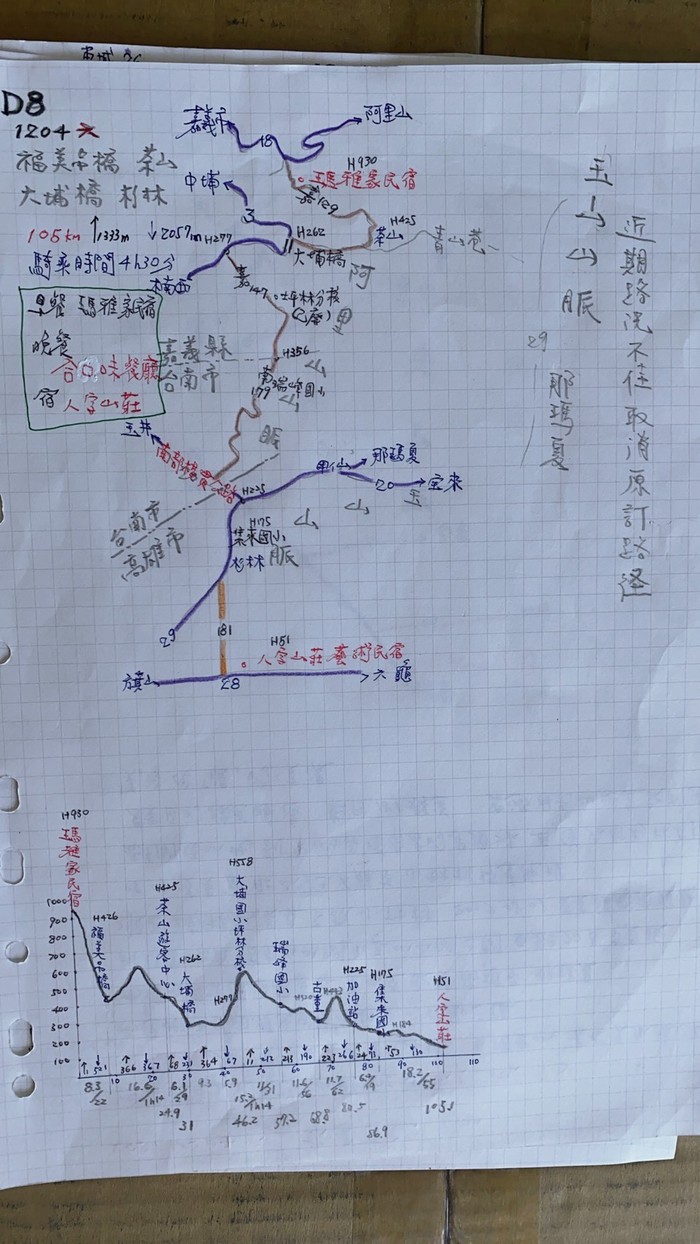 D8
1204 六
福美吊橋 茶山
大埔橋 杉林
105km ↑1333m ↓2057m
騎乘時間 4h30分
早餐 瑪雅家民宿
晚餐
合口味餐廳
宿 人字山莊
嘉義市
18
阿里山
H930
瑪雅家民宿
中埔
嘉129
3
H262
H425
茶山
H277
大埔橋
楠西
嘉147
坪林分校
阿里山山脈
H356
嘉義縣
台南市
南179
瑞峰國小
玉井
南部橫貫公路
H225
甲仙
那瑪夏
20
宝來
台南市
高雄市
玉山山脈
H175
集來國小
杉林
29
181
H51
人字山莊藝術民宿
旗山
28
六龜
玉山山脈
29
那瑪夏
近期路況不佳取消原訂路徑
H930
瑪雅家民宿
H426
福美吊橋
H425
茶山遊客中心
H262
大埔橋
H277
H558
大埔國小坪林分校
瑞峰國小
H225
加油站
H175
集來國小
H51
人字山莊
1000
900
800
700
600
500
400
300
200
100
10 20 30 40 50 60 70 80 90 100 110
8.3/22
16.6/1h14
29.9
31
9.3
5.9
46.2
57.2
68.8
80.5
86.9
18.2/55